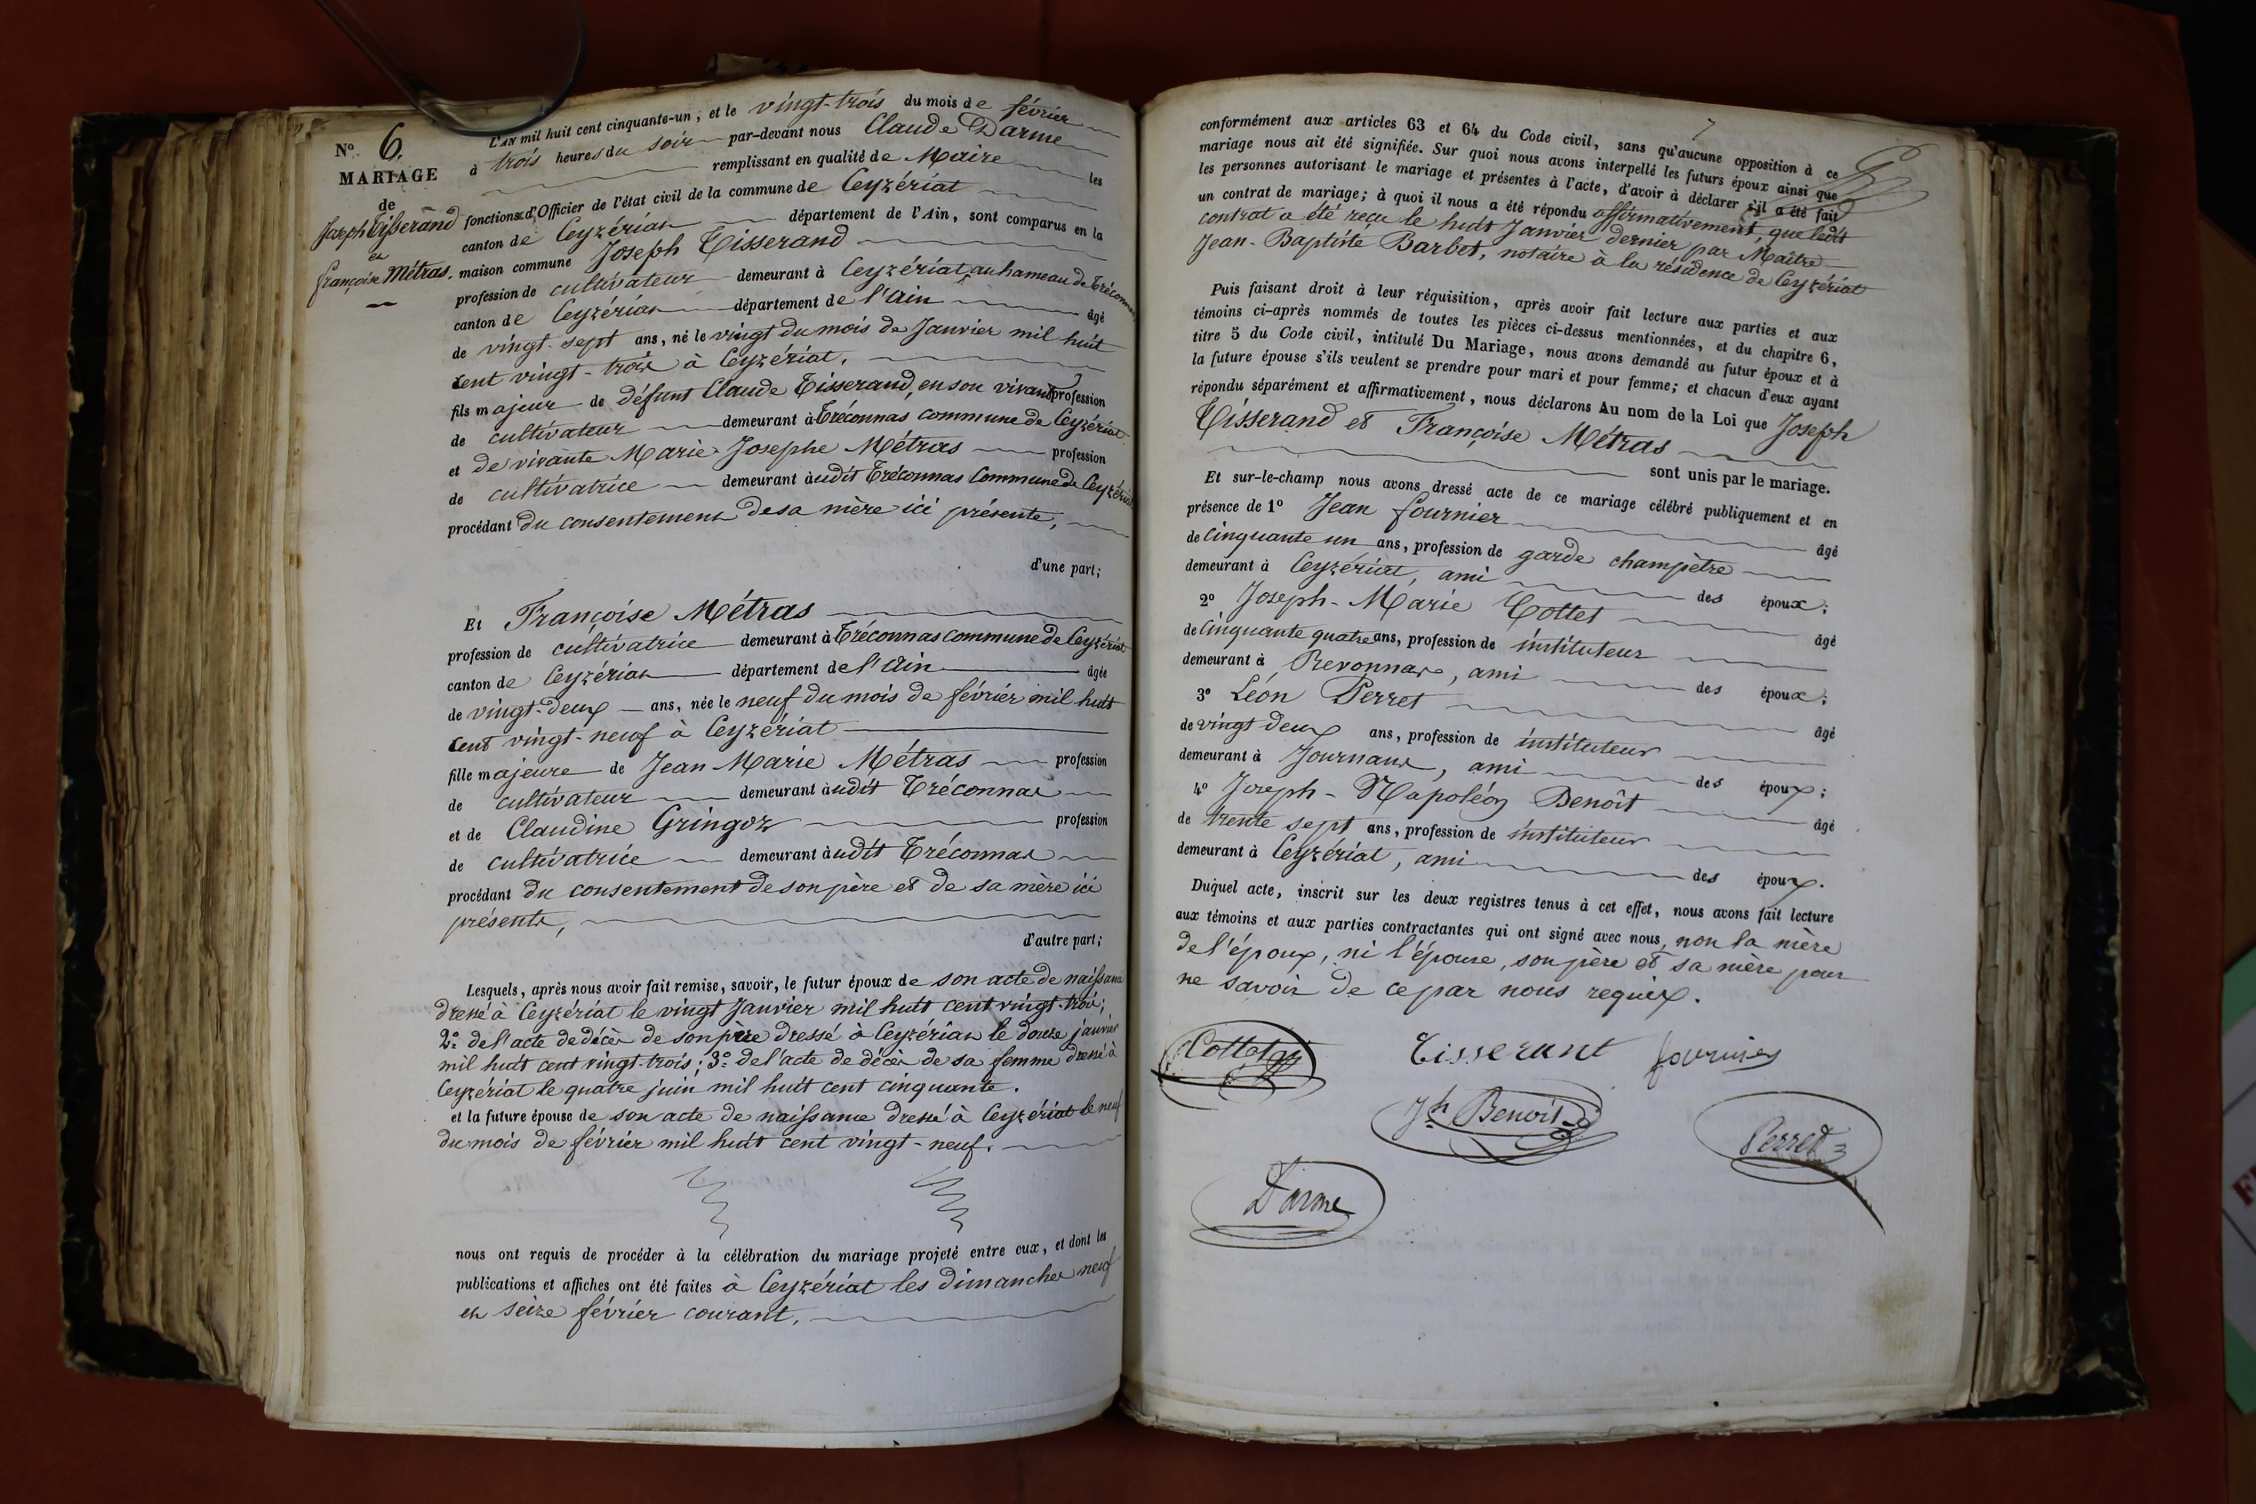 N.º 6.
MARIAGE
de
Joseph Tisserand
et
françoise Métras.
L'AN mil huit cent cinquante-un, et le vingt-trois du mois de février
à trois heures du soir par-devant nous Claude Darme
remplissant en qualité de Maire les
fonctions d'Officier de l'état civil de la commune de Ceyzériat
canton de Ceyzériat département de l'Ain, sont comparus en la
maison commune Joseph Tisserand
profession de cultivateur demeurant à Ceyzériat, au hameau de Tréconnas
canton de Ceyzériat département de l'ain âgé
de vingt-sept ans, né le vingt du mois de Janvier mil huit
cent vingt-trois à Ceyzériat,
fils majeur de défunt Claude Tisserand, en son vivant profession
de cultivateur demeurant à Tréconnas commune de Ceyzériat
et de vivante Marie-Josephe Métras profession
de cultivatrice demeurant audit Tréconnas Commune de Ceyzériat
procédant du consentement de sa mère ici présente,
d'une part;
Et Françoise Métras
profession de cultivatrice demeurant à Tréconnas commune de Ceyzériat
canton de Ceyzériat département de l'Ain âgée
de vingt-deux ans, née le neuf du mois de février mil huit
cent vingt-neuf à Ceyzériat
fille majeure de Jean Marie Métras profession
de cultivateur demeurant audit Tréconnas
et de Claudine Gringoz profession
de cultivatrice demeurant audit Tréconnas
procédant du consentement de son père et de sa mère ici
présents,
d'autre part;
Lesquels, après nous avoir fait remise, savoir, le futur époux de son acte de naissance
dressé à Ceyzériat le vingt Janvier mil huit cent vingt-trois;
2.º de l'acte de décès de son père dressé à Ceyzériat le douze janvier
mil huit cent vingt-trois; 3.º de l'acte de décès de sa femme dressé à
Ceyzériat le quatre juin mil huit cent cinquante.
et la future épouse de son acte de naissance dressé à Ceyzériat le neuf
du mois de février mil huit cent vingt-neuf.
nous ont requis de procéder à la célébration du mariage projeté entre eux, et dont les
publications et affiches ont été faites à Ceyzériat les dimanches neuf
et seize février courant,
7
conformément aux articles 63 et 64 du Code civil, sans qu'aucune opposition à ce
mariage nous ait été signifiée. Sur quoi nous avons interpellé les futurs époux ainsi que
les personnes autorisant le mariage et présentes à l'acte, d'avoir à déclarer s'il a été fait
un contrat de mariage; à quoi il nous a été répondu affirmativement, que ledit
contrat a été reçu le huit Janvier dernier par Maître
Jean-Baptiste Barbet, notaire à la résidence de Ceyzériat
Puis faisant droit à leur réquisition, après avoir fait lecture aux parties et aux
témoins ci-après nommés de toutes les pièces ci-dessus mentionnées, et du chapitre 6,
titre 5 du Code civil, intitulé Du Mariage, nous avons demandé au futur époux et à
la future épouse s'ils veulent se prendre pour mari et pour femme; et chacun d'eux ayant
répondu séparément et affirmativement, nous déclarons Au nom de la Loi que Joseph
Tisserand et Françoise Métras
sont unis par le mariage.
Et sur-le-champ nous avons dressé acte de ce mariage célébré publiquement et en
présence de 1º Jean fournier âgé
de Cinquante un ans, profession de garde champêtre
demeurant à Ceyzériat, ami des époux;
2º Joseph-Marie Cottet âgé
de Cinquante quatre ans, profession de instituteur
demeurant à Revonnas, ami des époux;
3º Léon Perret âgé
de vingt deux ans, profession de instituteur
demeurant à Journans, ami des époux;
4º Joseph-Napoléon Benoît âgé
de trente sept ans, profession de instituteur
demeurant à Ceyzériat, ami des époux.
Duquel acte, inscrit sur les deux registres tenus à cet effet, nous avons fait lecture
aux témoins et aux parties contractantes qui ont signé avec nous, non la mère
de l'époux, ni l'épouse, son père et sa mère pour
ne savoir de ce par nous requis.
Cottet Tisserant fournier
Jh Benoit Perret
Darme